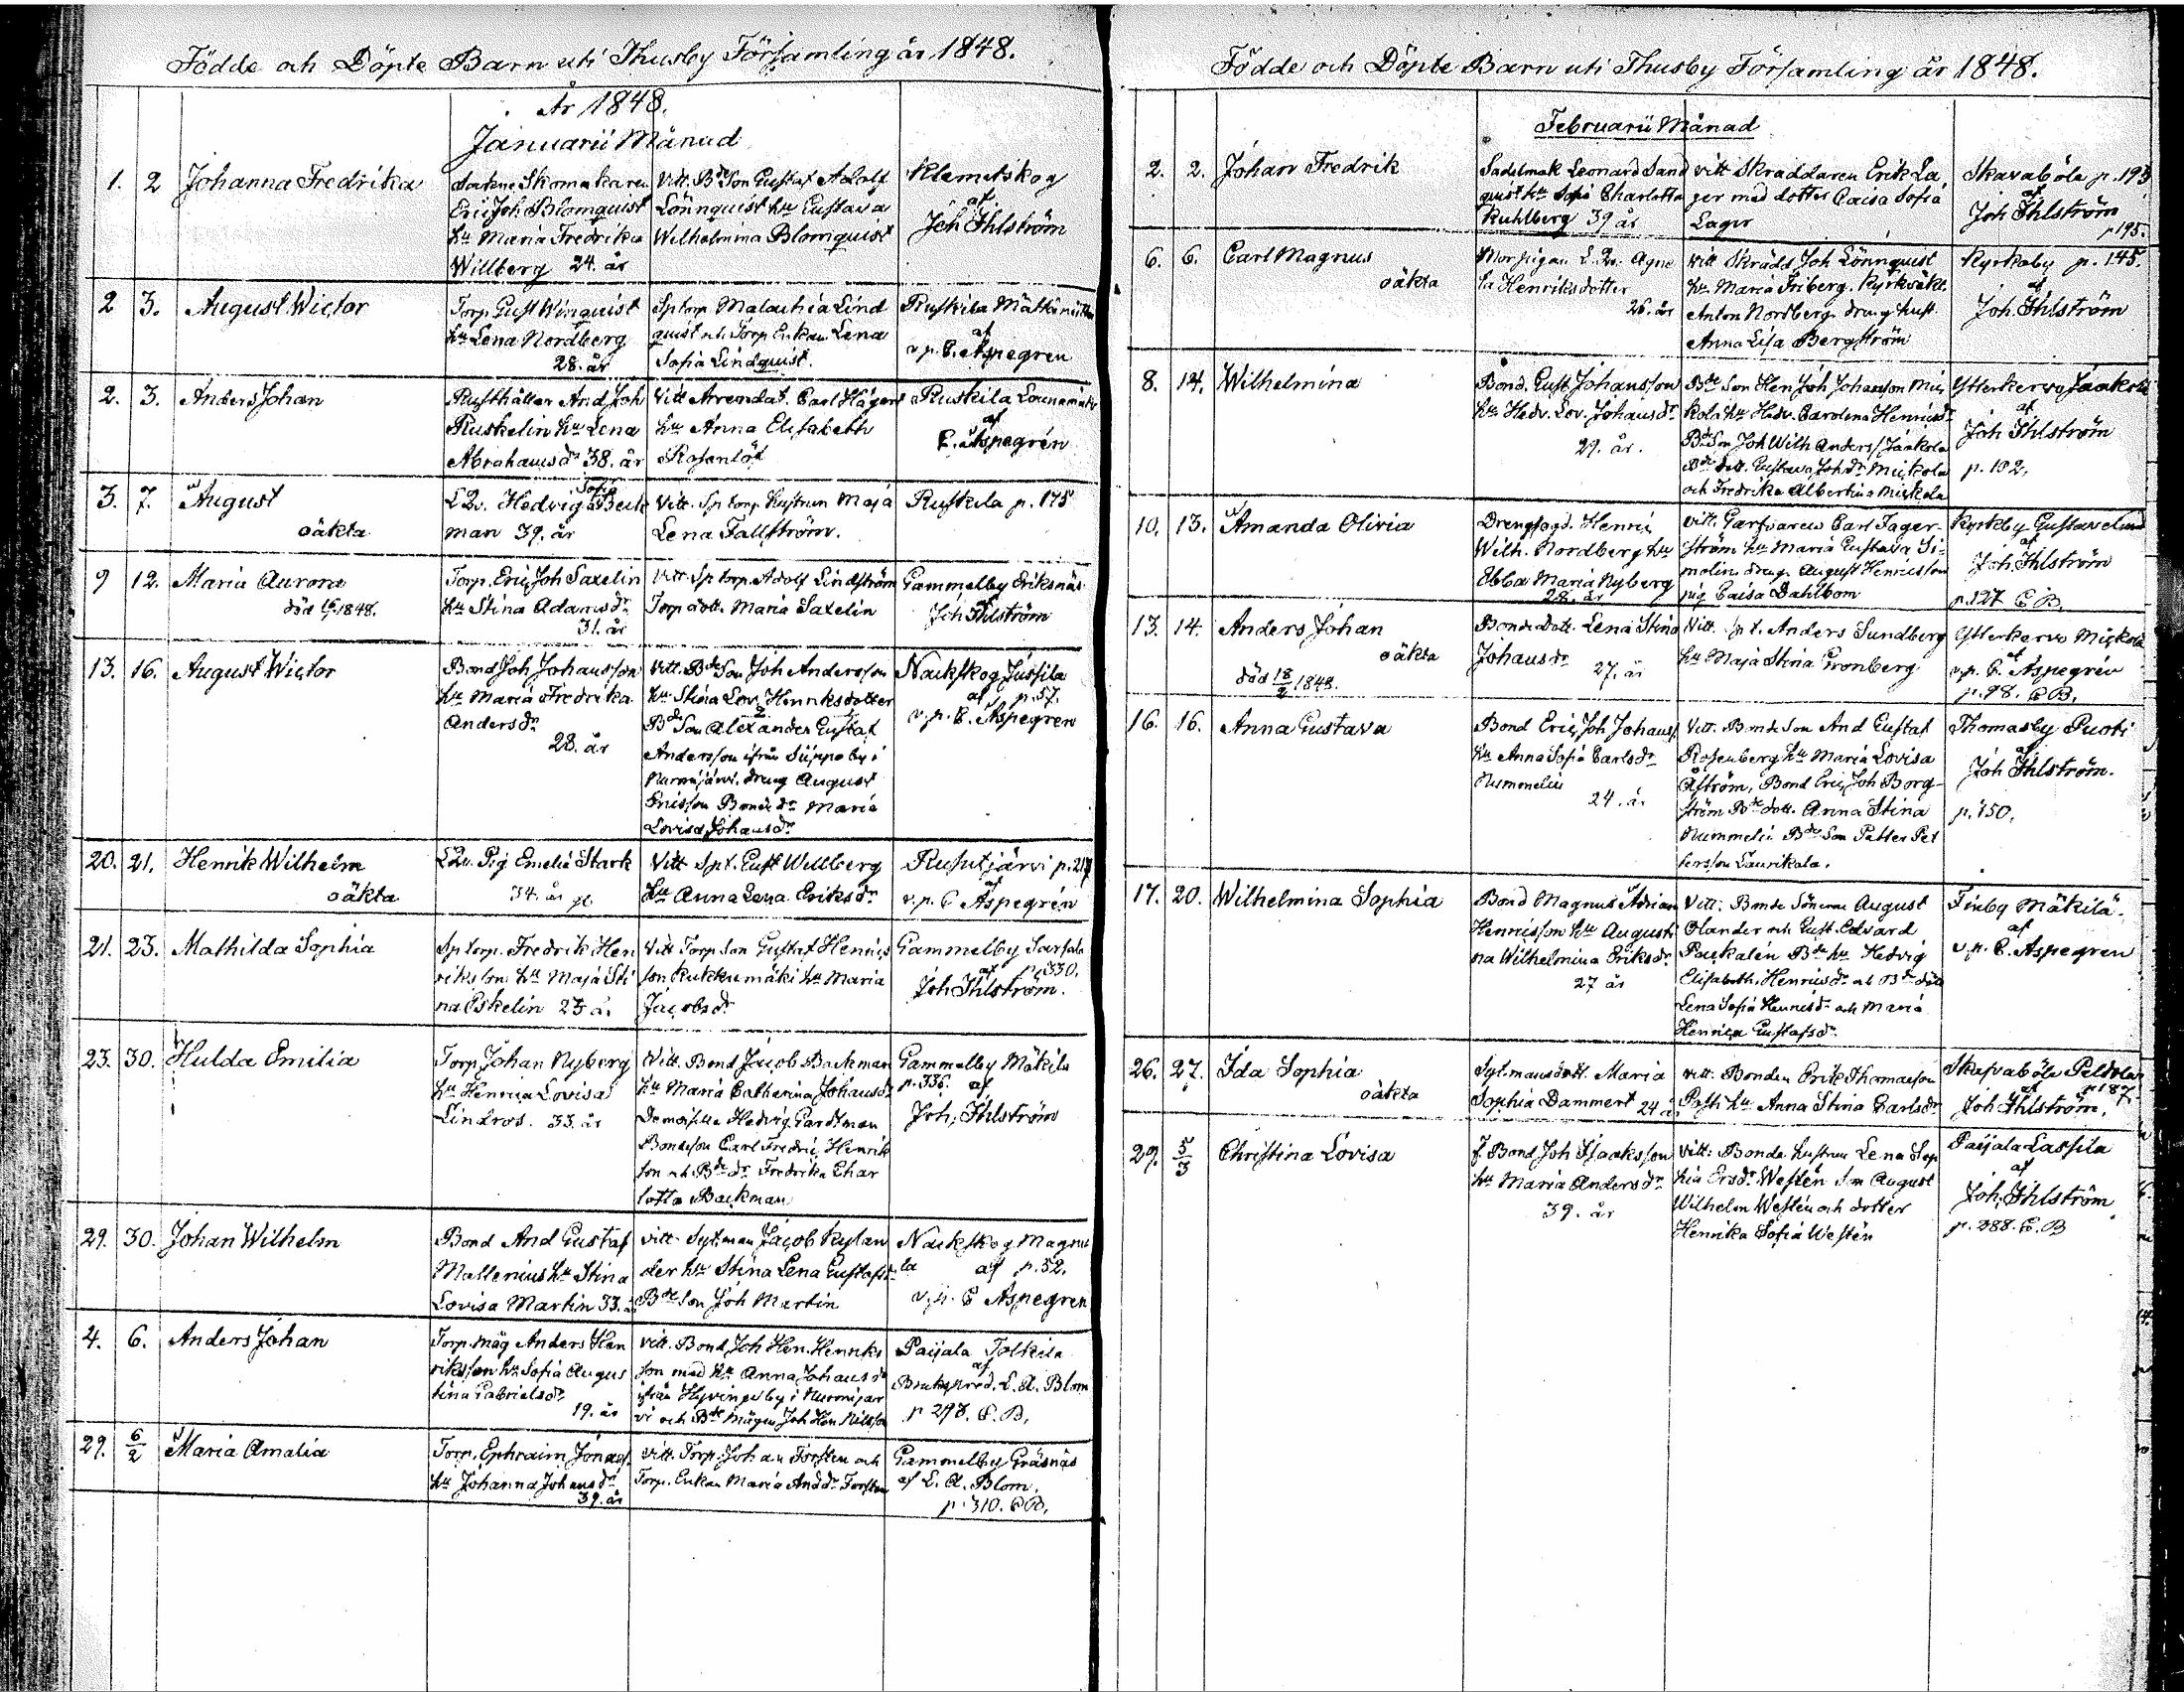 Födde och Döpte Barn uti Thusby Församling år 1848.
År 1848.
Januarii Månad
1. 2 Johanna Fredrika
Sockne Skomakaren
Eric Joh Blomquist
hu Maria Fredrika
Willberg 24. år
Vitt. Bde Son Gustaf Adolf
Lönnquist hu Gustava
Wilhelmina Blomquist
Klemetskog
af
Joh Ihlström
2 3. August Wictor
Torp. Gust Winquist
hu Lena Nordberg
28. år
Sptorp. Lind
quist och Torp. Enkan Lena
Sofia Lindquist.
Ruskila
af
v.p. E. Aspegren
2. 3. Anders Johan
Rusthåller And Joh
Ruskelin hu Lena
Abrahamsdr 38. år
Vitt Arrendat. Carl Häger
hu Anna Elisabeth
Rosenlöf
Ruskila
af
E. Aspegrén
3. 7. August
oäkta
Sofia
Hedvig Beck
man 39. år
Vitt. Sp torp. hustrun Maja
Lena Fallström.
Ruskila p. 175
9 12. Maria Aurora
död 1848.
Torp. Eric Joh Saxelin
hu Stina Adamsdr
31. år
Vitt. Sp torp. Adolf Lindström
Torp dott. Maria Saxelin
Gammelby Eriksnäs
af
Joh Ihlström
13. 16. August Wictor
Bond Joh Johansson
hu Maria Fredrika
Andersdr
28. år
Vitt. Bde Son Joh Andersson
hu Stina Lov. Henriksdotter
2.
Bde Son Alexander Gustaf
Andersson ifrån Siippo by i
Nurmijärvi. dreng August
Ericsson Bonde dr Maria
Lovisa Johansdr
Nackskog Jussila
af p. 57.
v. p. E. Aspegren
20. 21. Henrik Wilhelm
oäkta
Pig Emelia Stark
34. år
Vitt Spt. Gust Willberg
hu Anna Lena Eriksdr
Rusutjärvi p. 217
af
v. p. E Aspegrén
21. 23. Mathilda Sophia
Sp torp. Fredrik Hen
riksson hu Maja Sti
na Eskelin 23 å.
Vitt Torp. Son Gustaf Henrics
son Kukkumäki hu Maria
Jacobsdr
Gammelby
af p. 330.
Joh Ihlström.
23. 30. Hulda Emilia
Torp. Johan Nyberg
hu Henrica Lovisa
Lindros. 33. år
Vitt. Bond Jacob Backman
hu Maria Catharina Johansdr
Demoiselle Hedvig Gardman
Bondeson Carl Fredric Henrik
son och Bde dr Fredrika Char
lotta Backman
Gammelby Mäkilä
p. 336. af
Joh, Ihlström
29. 30. Johan Wilhelm
Bond And Gustaf
Mallenius hu Stina
Lovisa Martin 33. å
vitt. Sytman Jacob Rylan
der hu Stina Lena Gustafsdr
Bde Son Joh Martin
Nackskog Magnu
la af p. 52.
v. p. E Aspegren
4. 6. Anders Johan
Torp. måg Anders Hen
riksson hu Sofia Augus
tina Gabrielsdr
19. år
Vitt. Bond Joh Hen. Henriks
son med hu Anna Johansdr
ifrån Hyvinge by i Nurmijär
vi och Bde mågen Joh Hen Nilsson
Paijala Tolkila
af
Brukspred. L. A. Blom
p 298. E. B.
29. 6/2 Maria Amalia
Torp. Ephraim Jonass
hu Johanna Johansdr
39. år
Vitt. Torp. Johan Forstén och
Torp. Enkan Maria Andsdr Forsten
Gammelby Gräsnäs
af L. A. Blom.
p. 310. E B.
Födde och Döpte Barn uti Thusby Församling år 1848.
Februarii Månad
2. 2. Johan Fredrik
Sadelmak Leonard Sand
quist hu Sofia Charlotta
Kuhlberg 39 år
vitt Skräddaren Erik La
ger med dotter Caisa Sofia
Lager
Skavaböle p. 193
af
Joh Ihlström
p 195.
6. 6. Carl Magnus
oäkta
Agne
ta Henriksdotter
26. år
Vitt Skrädd Joh Lönnquist
hu Maria Friberg. Kyrkväkt.
Anton Nordberg dreng hust.
Anna Lisa Bergström
Kyrkoby p. 145.
af
Joh. Ihlström
8. 14. Wilhelmina
Bond. Gust Johansson
hu Hedv. Lov. Johansdr
29. år.
Bde Son Hen Joh Johansson Mic
kola hu Hedv. Carolina Henricsdr
Bde Son Joh Wilh Anderss Jaakola
Bde dott. Gustava Johsdr Mickola
och Fredrika Albertina Mickola
Ytterkervo Jaakola
af
Joh Ihlström
p. 102.
10. 13. Amanda Olivia
Drengfogd. Henric
Wilh. Nordberg hu
Ebba Maria Nyberg
28. år
vitt. Garfvaren Carl Fager-
ström hu Maria Gustava Si-
molin dreng. August Henricsson
pig Caisa Dahlbom
Kyrkby Gustavelund
af
Joh. Ihlström
p. 127 E B.
13. 14. Anders Johan
oäkta
död 18/2 1848.
Bonde Dott. Lena Stina
Johansdr
27. år
Vitt. Sp t. Anders Sundberg
hu Maja Stina Cronberg
Ytterkervo Mickola
af
v. p. E. Aspegrén
p. 98. E B.
16. 16. Anna Gustava
Bond Eric Joh Johanss
hu Anna Sofia Carlsdr
Nummelin
24. år
Vitt. Bonde Son And Gustaf
Rosenberg hu Maria Lovisa
Åström, Bond Eric Joh Borg-
ström Bde dott. Anna Stina
Nummelin Bde Son Petter Pet
tersson Laurikala.
Thomasby Puoti
af
Joh Ihlström.
p. 150.
17. 20. Wilhelmina Sophia
Bond Magnus Adrian
Henricsson hu Augusti
na Wilhelmina Eriksdr
27 år
Vitt: Bonde Sönerne August
Olander och Gust. Edvard
Packalén Bde hu Hedvig
Elisabeth Henricsdr och Bde dött
Lena Sofia Henricsdr och Maria
Henrica Gustafsdr.
Finby Mäkilä.
af
v. p. E. Aspegren
26. 27. Ida Sophia
oäkta
Sytmansdott. Maria
Sophia Dammert 24 år
vitt: Bonden Erik Thomasson
Pasti hu Anna Stina Carlsdr
Skafvaböle Peldola
af p 187.
Joh Ihlström.
29. 5/3 Christina Lovisa
f. Bond Joh Isaksson
hu Maria Andersdr
39. år
Vitt: Bonde hustrun Lena Sop
hia Ersdr Westén Son August
Wilhelm Westén och dotter
Henrika Sofia Westén
Paijala Lassila
af
Joh, Ihlström
p. 288. E. B